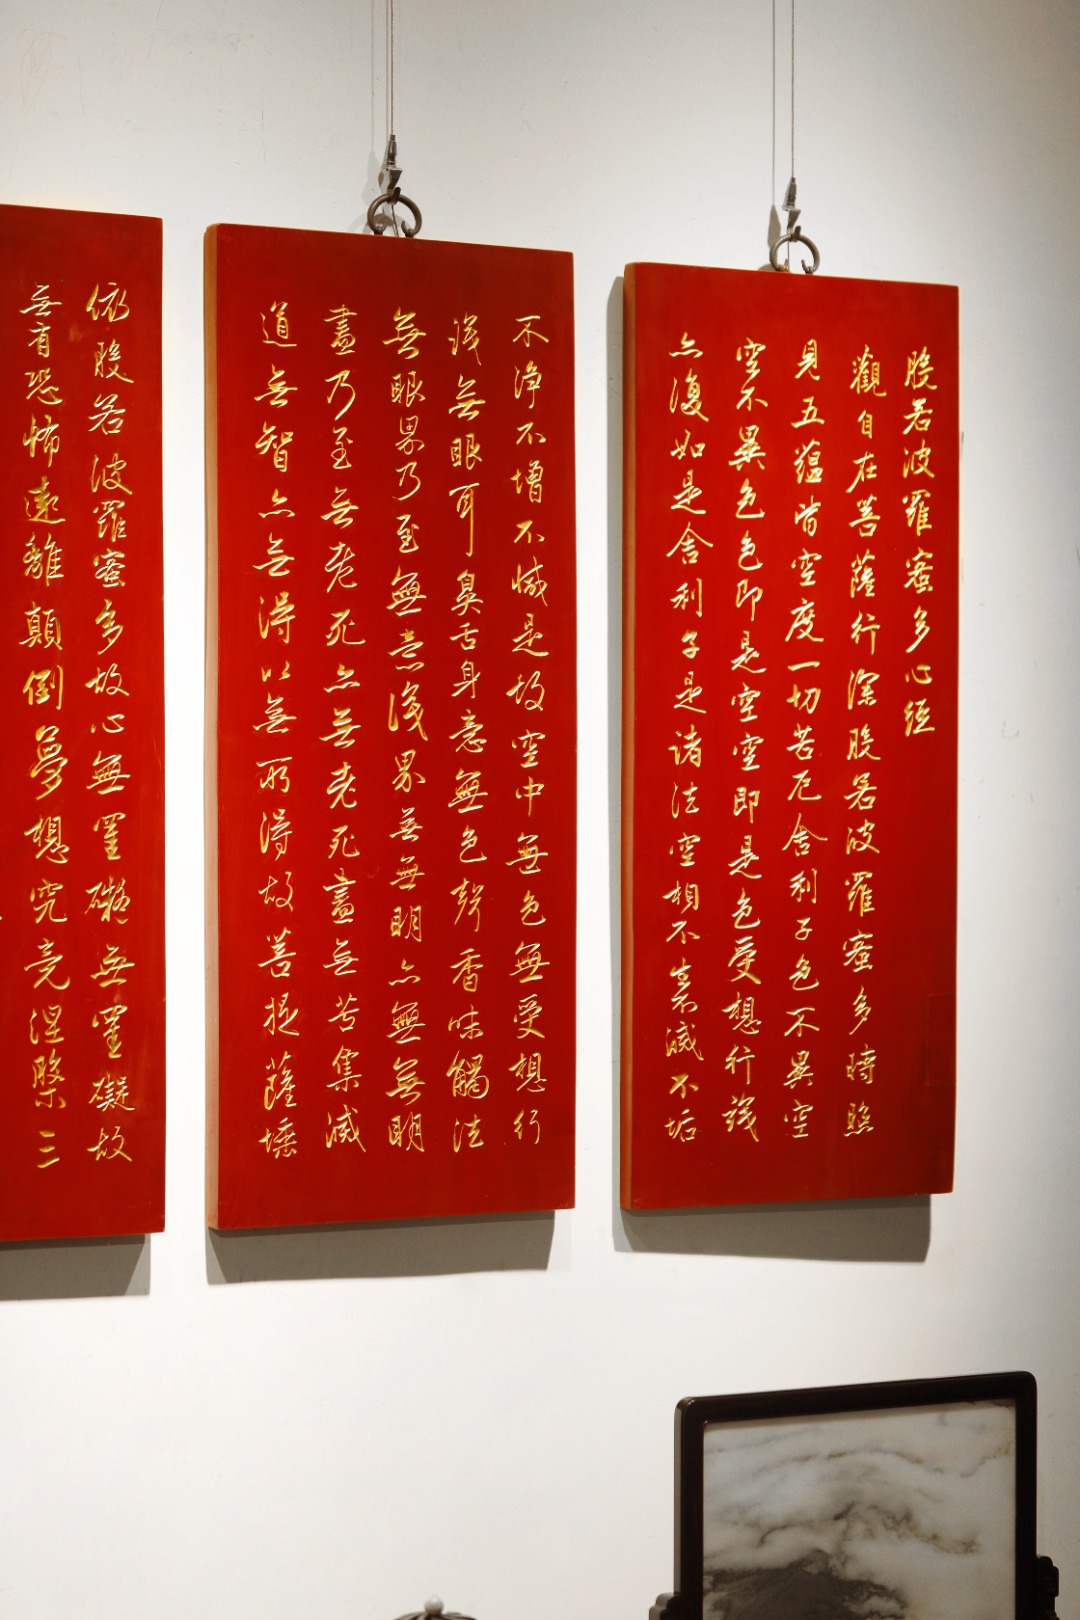 般若波羅蜜多心經
觀自在菩薩行深般若波羅蜜多時照
見五蘊皆空度一切苦厄舍利子色不異空
空不異色色即是空空即是色受想行識
亦復如是舍利子是諸法空相不生不滅不垢
不淨不增不減是故空中無色無受想行
識無眼耳鼻舌身意無色聲香味觸法
無眼界乃至無意識界無無明亦無無明
盡乃至無老死亦無老死盡無苦集滅
道無智亦無得以無所得故菩提薩埵
依般若波羅蜜多故心無罣礙無罣礙故
無有恐怖遠離顛倒夢想究竟涅槃三